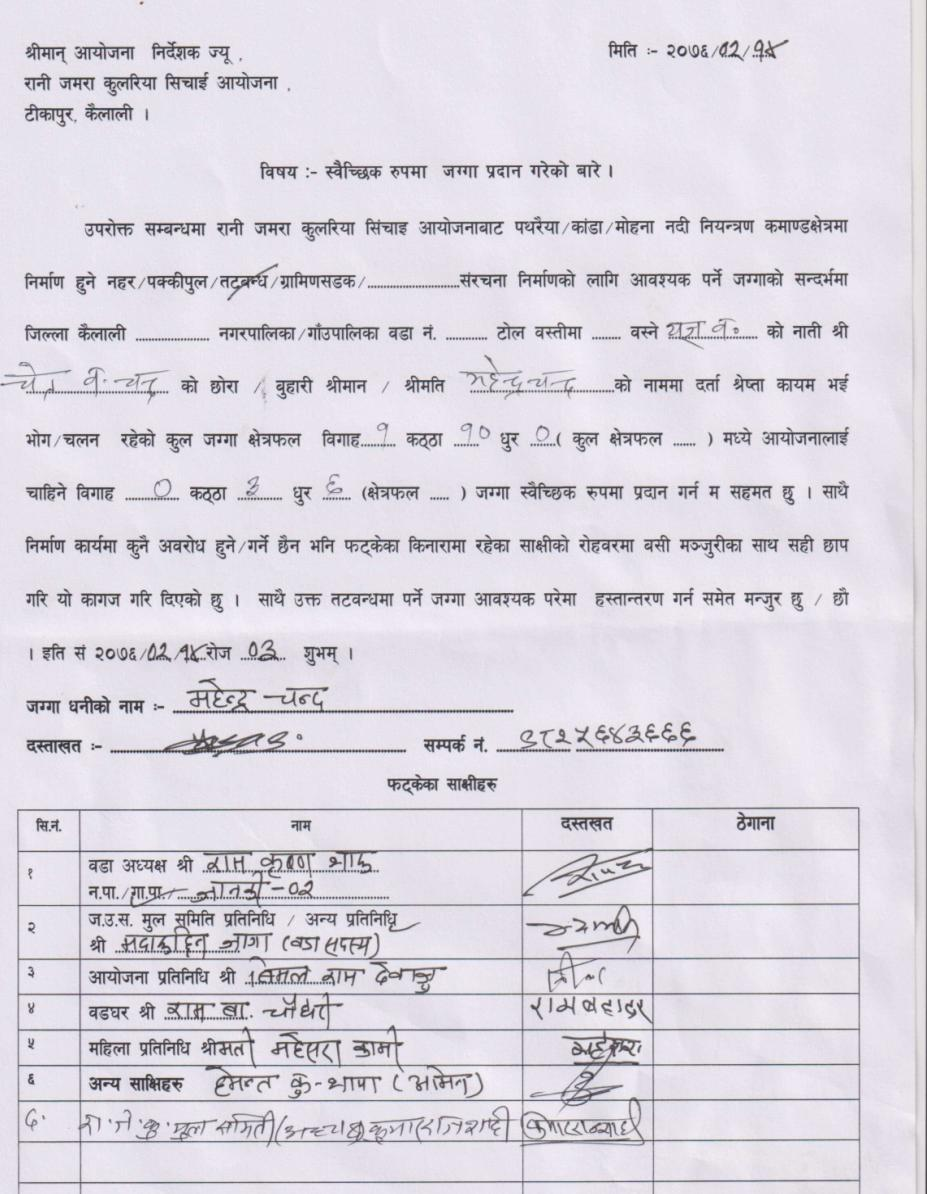 श्रीमान् आयोजना निर्देशक ज्यू ,
मिति :- २०७६/02/१४
रानी जमरा कुलरिया सिचाई आयोजना ,
टीकापुर, कैलाली ।
विषय :- स्वैच्छिक रुपमा जग्गा प्रदान गरेको बारे ।
उपरोक्त सम्बन्धमा रानी जमरा कुलरिया सिंचाइ आयोजनाबाट पथरैया/कांडा/मोहना नदी नियन्त्रण कमाण्डक्षेत्रमा
निर्माण हुने नहर/पक्कीपुल/तटबन्ध/ग्रामिणसडक/....................संरचना निर्माणको लागि आवश्यक पर्ने जग्गाको सन्दर्भमा
जिल्ला कैलाली ................ नगरपालिका/गाँउपालिका वडा नं. ......... टोल वस्तीमा ...... वस्ने को नाती श्री
चन्द को छोरा / बुहारी श्रीमान / श्रीमति महेन्द्र चन्द को नाममा दर्ता श्रेष्ता कायम भई
भोग/चलन रहेको कुल जग्गा क्षेत्रफल विगाह १ कठ्ठा १० धुर 0 ( कुल क्षेत्रफल ...... ) मध्ये आयोजनालाई
चाहिने विगाह 0 कठ्ठा ३ धुर ६ (क्षेत्रफल ..... ) जग्गा स्वैच्छिक रुपमा प्रदान गर्न म सहमत छु । साथै
निर्माण कार्यमा कुनै अवरोध हुने/गर्ने छैन भनि फट्केका किनारामा रहेका साक्षीको रोहवरमा वसी मञ्जुरीका साथ सही छाप
गरि यो कागज गरि दिएको छु । साथै उक्त तटवन्धमा पर्ने जग्गा आवश्यक परेमा हस्तान्तरण गर्न समेत मन्जुर छु / छौ
। इति सं २०७६/02/१४ रोज 03 शुभम् ।
जग्गा धनीको नाम :- महेन्द्र चन्द
दस्ताखत :- सम्पर्क नं. ९८२५६४३६६६
फट्केका साक्षीहरु
सि.नं. नाम दस्तखत ठेगाना
१ वडा अध्यक्ष श्री राम कृष्ण
न.पा./गा.पा. जानकी-०२
२ ज.उ.स. मुल समिति प्रतिनिधि / अन्य प्रतिनिधि
श्री (वडा सदस्य)
३ आयोजना प्रतिनिधि श्री राम
४ वडघर श्री राम बा. चौधरी रामबहादुर
५ महिला प्रतिनिधि श्रीमती महेसरा
६ अन्य साक्षिहरु हेमन्त कु-थापा (अमिन)
रा.ज.कु. मुल समिती